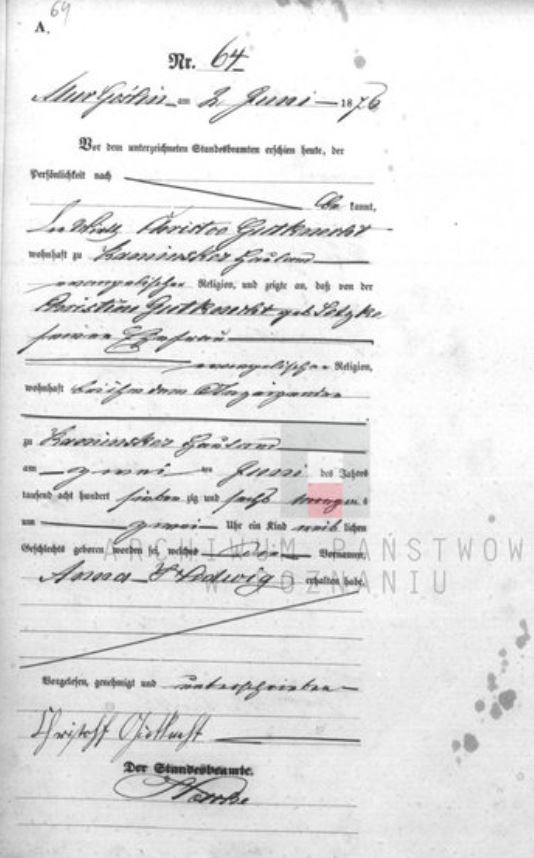 64
A.
Nr. 64
Mur Goslin am 2 Juni 1876
Vor dem unterzeichneten Standesbeamten erschien heute, der
Persönlichkeit nach
be kannt,
der Wirth Christoph Gutknecht
wohnhaft zu Kaminsker Hauland
evangelischer Religion, und zeigte an, daß von der
Christine Gutknecht geb.
seiner Ehefrau
evangelischer Religion,
wohnhaft bei ihm dem Anzeigenden
zu Kaminsker Hauland
am zwei ten Juni des Jahres
tausend acht hundert sieben zig und sechs morgens
um zwei Uhr ein Kind weib lichen
Geschlechts geboren worden sei, welches die Vornamen
Anna Hedwig erhalten habe.
Vorgelesen, genehmigt und unterschrieben
Christoff Gutknecht
Der Standesbeamte.
ARCHIWUM PAŃSTWOW
W POZNANIU